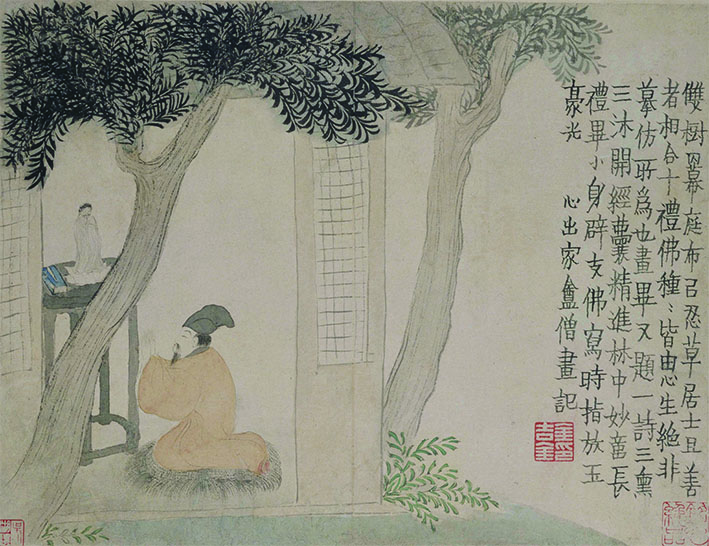 雙樹冪庭布㠯忍草居士且善
者相合十禮佛種〻皆由心生絕非
摹仿所爲也畫畢又題一詩三熏
三沐開經囊精進林中妙意長
禮畢小身辟支佛寫時指放玉
豪光　心出家盦僧畫記